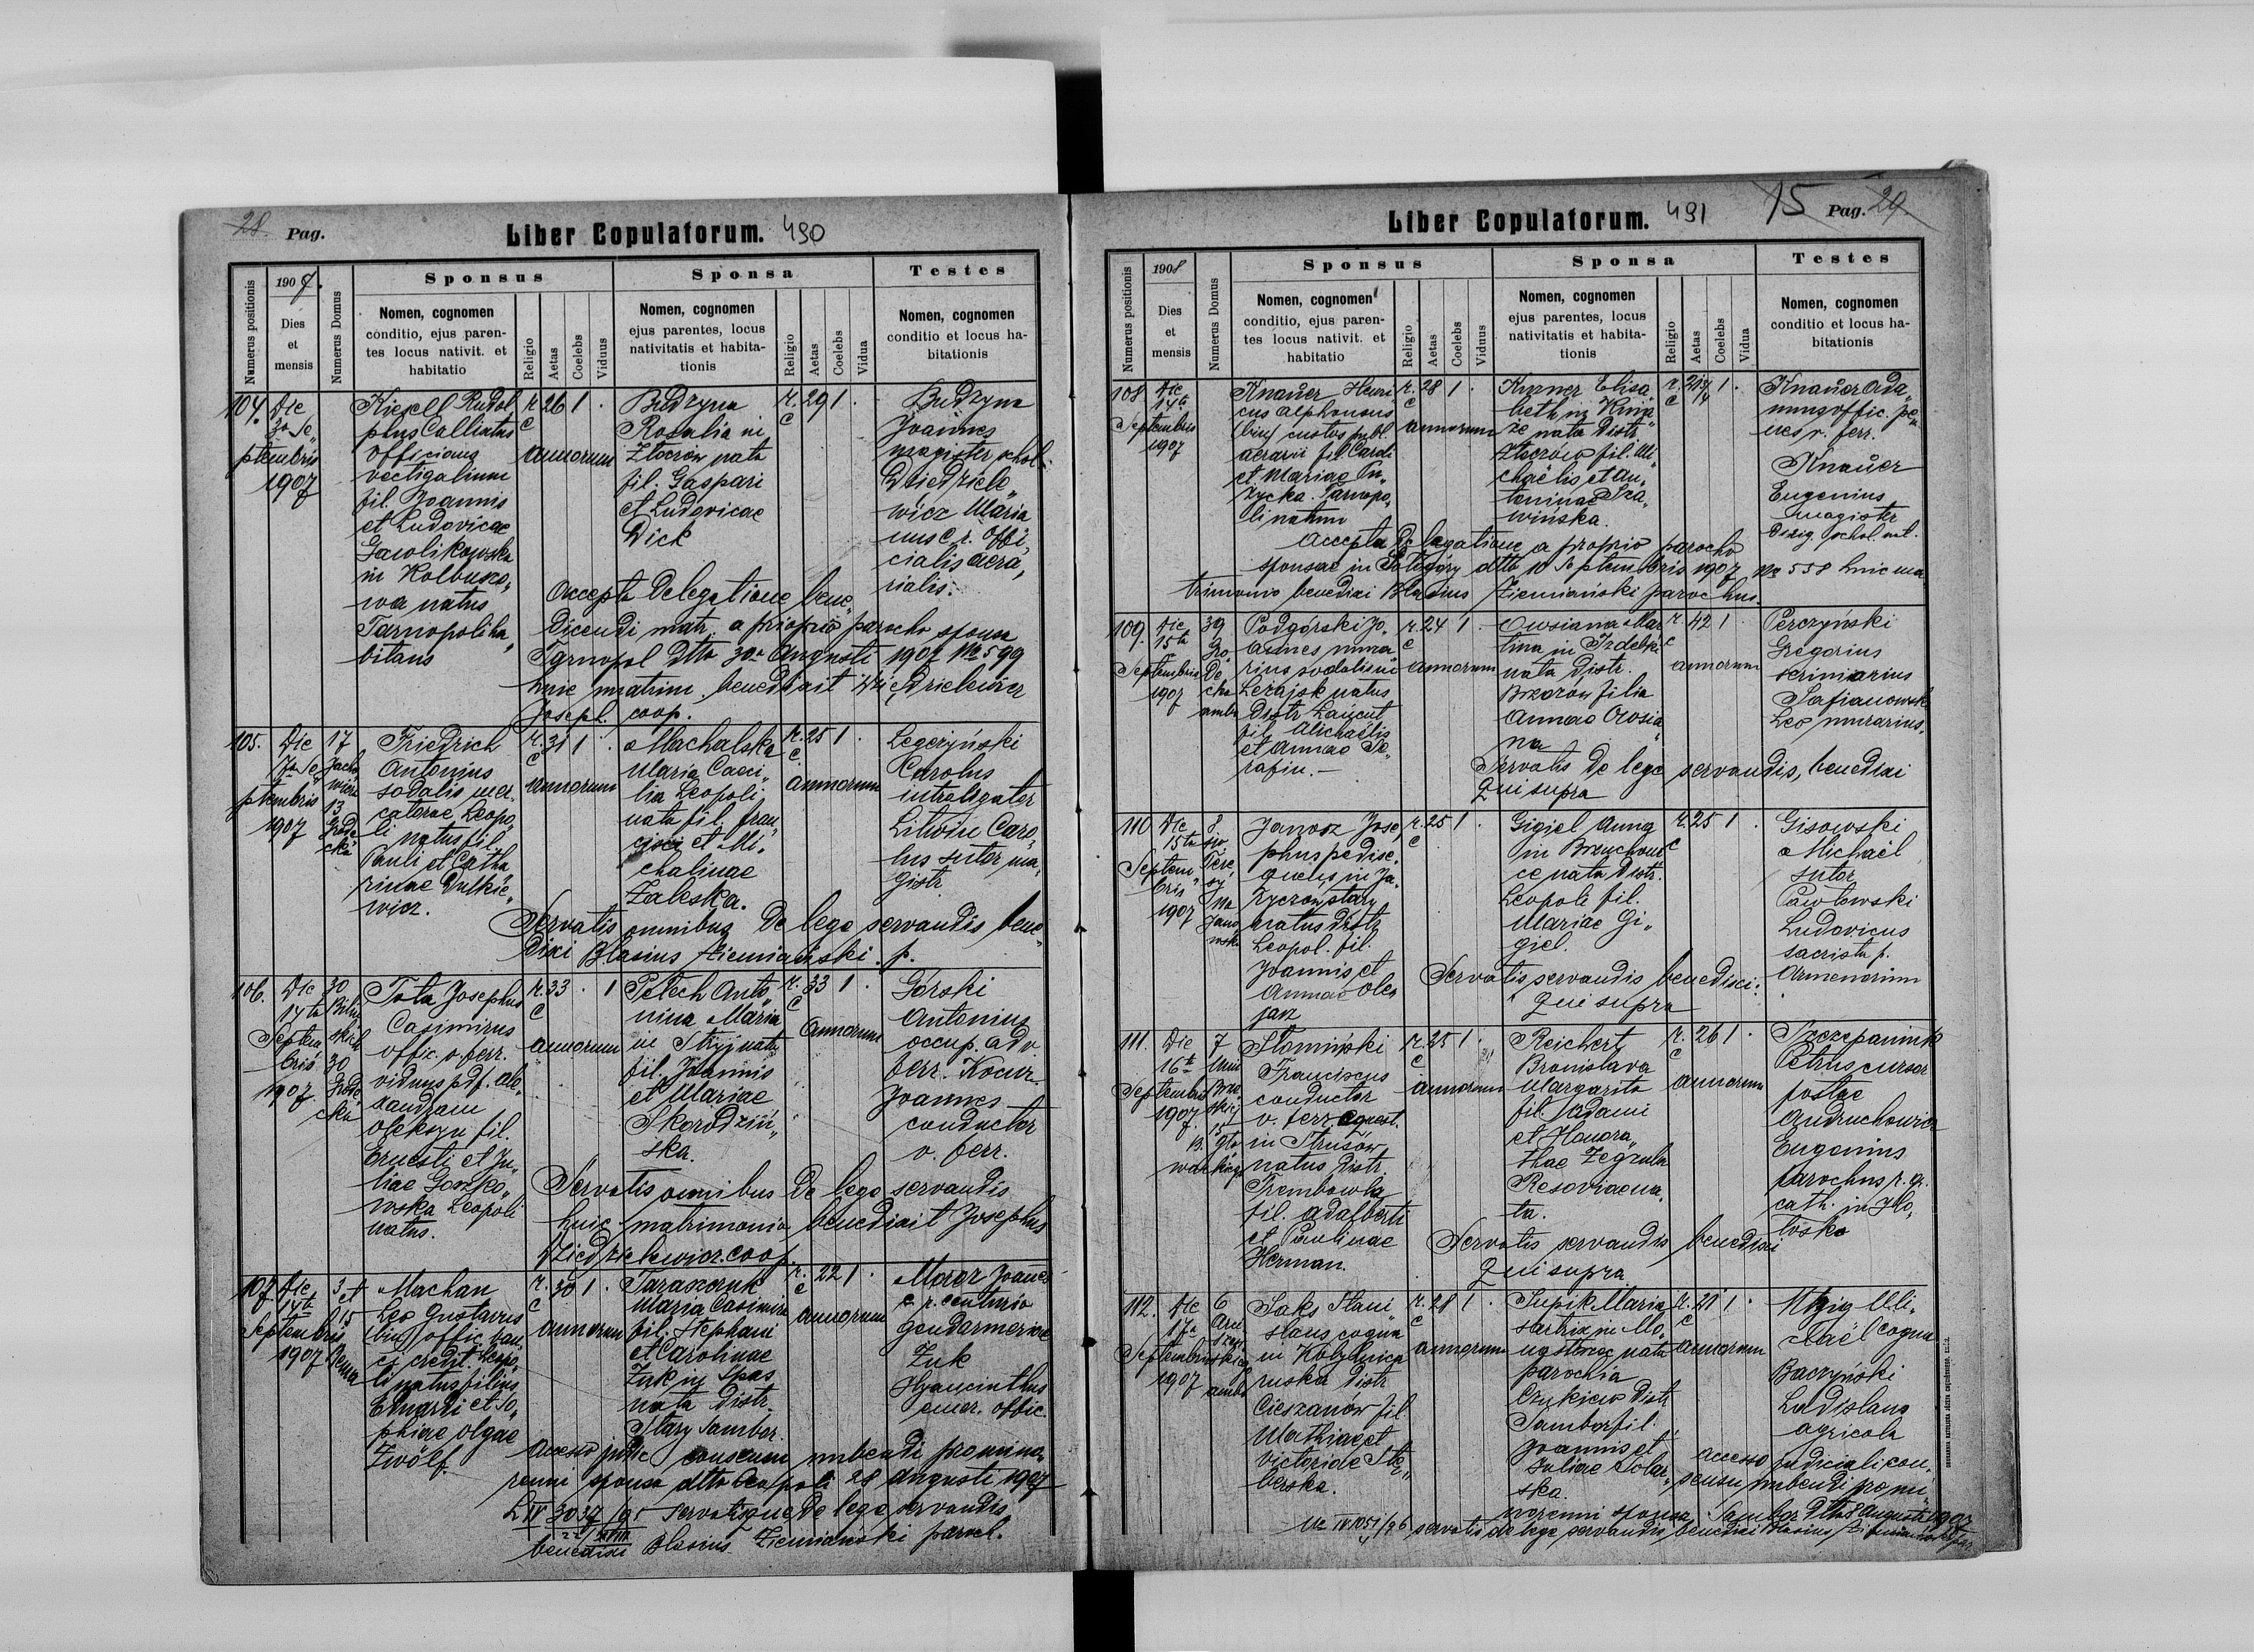 28. Pag.
Liber Copulatorum. 490
Numerus positionis
1907.
Dies
et
mensis
Numerus Domus
Sponsus
Nomen, cognomen
conditio, ejus paren-
tes locus nativit. et
habitatio
Religio
Aetas
Coelebs
Viduus
Sponsa
Nomen, cognomen
ejus parentes, locus
nativitatis et habita-
tionis
Religio
Aetas
Coelebs
Vidua
Testes
Nomen, cognomen
conditio et locus ha-
bitationis
104.
Die
3a Se„
ptembris
1907
Rudol
phus Calliatus
officians
vectigalium
fil. Joannis
et Ludovicae
Gawlikowska
in Kolbuszo„
wa natus
Tarnopoli ha„
bitans
r. c
26
1
.
annorum
Budzyna
Rosalia in
Złoczów nata
fil. Gaspari
et Ludovicae
Dick
r. c
29
1
.
Budzyna
Joannes
magister schol.
Dziedziele„
wicz Maria
nus c. r. offi„
cialis aera„
rialis.
Accepta Delegatione bene„
dicendi matr. a proprio parocho sponsa
Tarnopol dtto 30a Augusti 1907 No 599
huic matrim. benedixit Dziedzielewicz
Joseph. coop.
105.
Die
7a Se„
ptembris
1907
17
13
Gróde
cka
Friedrich
Antonius
sodalis mer„
catorae Leopo„
li natus fil.
Pauli et Catha„
rinae Dutkie„
wicz.
r. c
31
1
.
annorum
Machalska
Maria Caeci„
lia Leopoli
nata fil. Fran„
cisci et Mi„
chalinae
Zaleska.
r. c
25
1
.
annorum
Legeżyński
Carolus
introligator
Litwin Caro„
lus sutor ma„
gistr.
Servatis omnibus de lege servandis bene„
dixi Blasius Ziemiański p.
106.
Die
14ta
Septem
bris
1907
30
30
Gróde
cka
Tota Josephus
Casimirus
offic. v. ferr.
viduus p. df. Ale„
xandram
Oleksyn fil.
Ernesti et Ju„
liae
Leopoli
natus.
r. c
33
.
1
annorum
Petech Anto„
nina Maria
in Stryj nata
fil. Joannis
et Mariae
Skorodziń„
ska.
r. c
33
1
.
annorum
Górski
Antonius
occup. ad v.
ferr. Kocur
Joannes
conductor
v. ferr.
Servatis omnibus de lege servandis
huic matrimonio benedixit Josephus
Dziedzielewicz coop.
107.
Die
14ta
Septembris
1907
3 et
15
Bema
Machan
Leo Gustavus
(bin) offic. ban„
ci credit. Leopo„
li natus filius
Eduardi et So„
phiae Olgae
Zwölf.
r. c
30
1
.
annorum
Taraszczuk
Maria Casimira
fil. Stephani
et Carolinae
Żuk in Spas
nata distr.
Stary Sambor.
r. c
22
1
.
annorum
Moroz Joannes
c. r. centurio
gendarmeriae
Żuk
Hyacinthus
emer. offic.
Accesso judic consensu nubendi pro mino„
renni sponsa dtto Leopoli 28 Augusti 1907
Servatisque de lege servandis
benedixi Blasius Ziemiański paroch.
15 Pag. 29.
Liber Copulatorum. 491
Numerus positionis
1908
Dies
et
mensis
Numerus Domus
Sponsus
Nomen, cognomen
conditio, ejus paren-
tes locus nativit. et
habitatio
Religio
Aetas
Coelebs
Viduus
Sponsa
Nomen, cognomen
ejus parentes, locus
nativitatis et habita-
tionis
Religio
Aetas
Coelebs
Vidua
Testes
Nomen, cognomen
conditio et locus ha-
bitationis
108
Die
14ta
Septembris
1907
Knauer Henri„
cus Alphonsus
(bin) custos publ.
aerarii fil. Caroli
et Mariae
Tarnopo„
li natum
r. c
28
1
.
annorum
Elisa
beth in Knia„
że nata distr.
Złoczów fil. Mi„
chaëlis et An„
toninae
wińska.
r. c
1
.
Knauer Ada„
mus offic. pe„
nes v. ferr.
Knauer
Eugenius
magister
schol.
Accepta Delegatione a proprio parocho
sponsae in dtto 10 Septembris 1907 No 558 huic ma
trimonio benedixi Blasius Ziemiański parochus.
109.
Die
15ta
Septembris
1907
39
Gro„
de
cka
ambo
Podgórski Jo„
annes mura„
rius sodalis in
Leżajsk natus
Distr Łańcut
fil. Michaëlis
et Annae Se„
rafin.—
r. c
24
1
annorum
Owsiana Mar
tina in Izdebki
nata Distr.
Brzozów filia
Annae Owsia„
na
r. c
42
1
.
annorum
Perczyński
Gregorius
scriniarius
Safianowski
Leo murarius.
Servatis de lege servandis, benedixi
Qui supra
110
Die
15ta
Septem„
bris
1907
8
na
Jano
wska
Janosz Jose„
phus pedise„
quus, in Ja„
ryczów stary
natus distr
Leopol. fil.
Joannis et
Annae Ole„
jarz
r. c
25
1
.
Gigiel Anna
in Brzuchowi
ce nata Distr.
Leopoli fil.
Mariae Gi„
giel.
r. c
25
1
.
Gisowski
Michaël
sutor
Pawłowski
Ludovicus
sacrista p.
Armenorum
Servatis servandis benedixi:
Qui supra
111.
Die
16ta
Septembris
1907
7
15
Słomiński
Franciscus
conductor
v. ferr. equest.
in Strusów
natus Distr.
Trembowla
fil. Adalberti
et Paulinae
Herman.
r. c
25
1
.
annorum
Reichert
Bronislava
Margarita
fil. Adami
et Honora„
thae Zegzula
Resoviae na„
ta.
r. c
26
1
.
annorum
Szczepaniuk
Petrus cursor
postae
Andruchowicz
Eugenius
parochus r. gr.
cath. in Hło„
łosko
Servatis servandis benedixi
Qui supra
112.
Die
17a
Septembris
1907
6
ambo
Saks Stani„
slaus coquus
in Kobylnica
ruska distr
Cieszanów fil.
Mathiae et
Victoriae
berska.
r. c
28
1
.
annorum
Supik Maria
sartrix in Mo„
nasterzec nata
parochia
Czukiew distr
Sambor fil.
Joannis et
Juliae
ska.
r. c
21
1
.
annorum
Mi„
chaël coquus
Baczyński
Ladislaus
agricola
Accesso judiciali con„
sensu nubendi pro mi„
norenni sponsa, Sambor dtto 8 Augusti 1907
servatis de lege servandis, benedixi Blasius Ziemiański par.